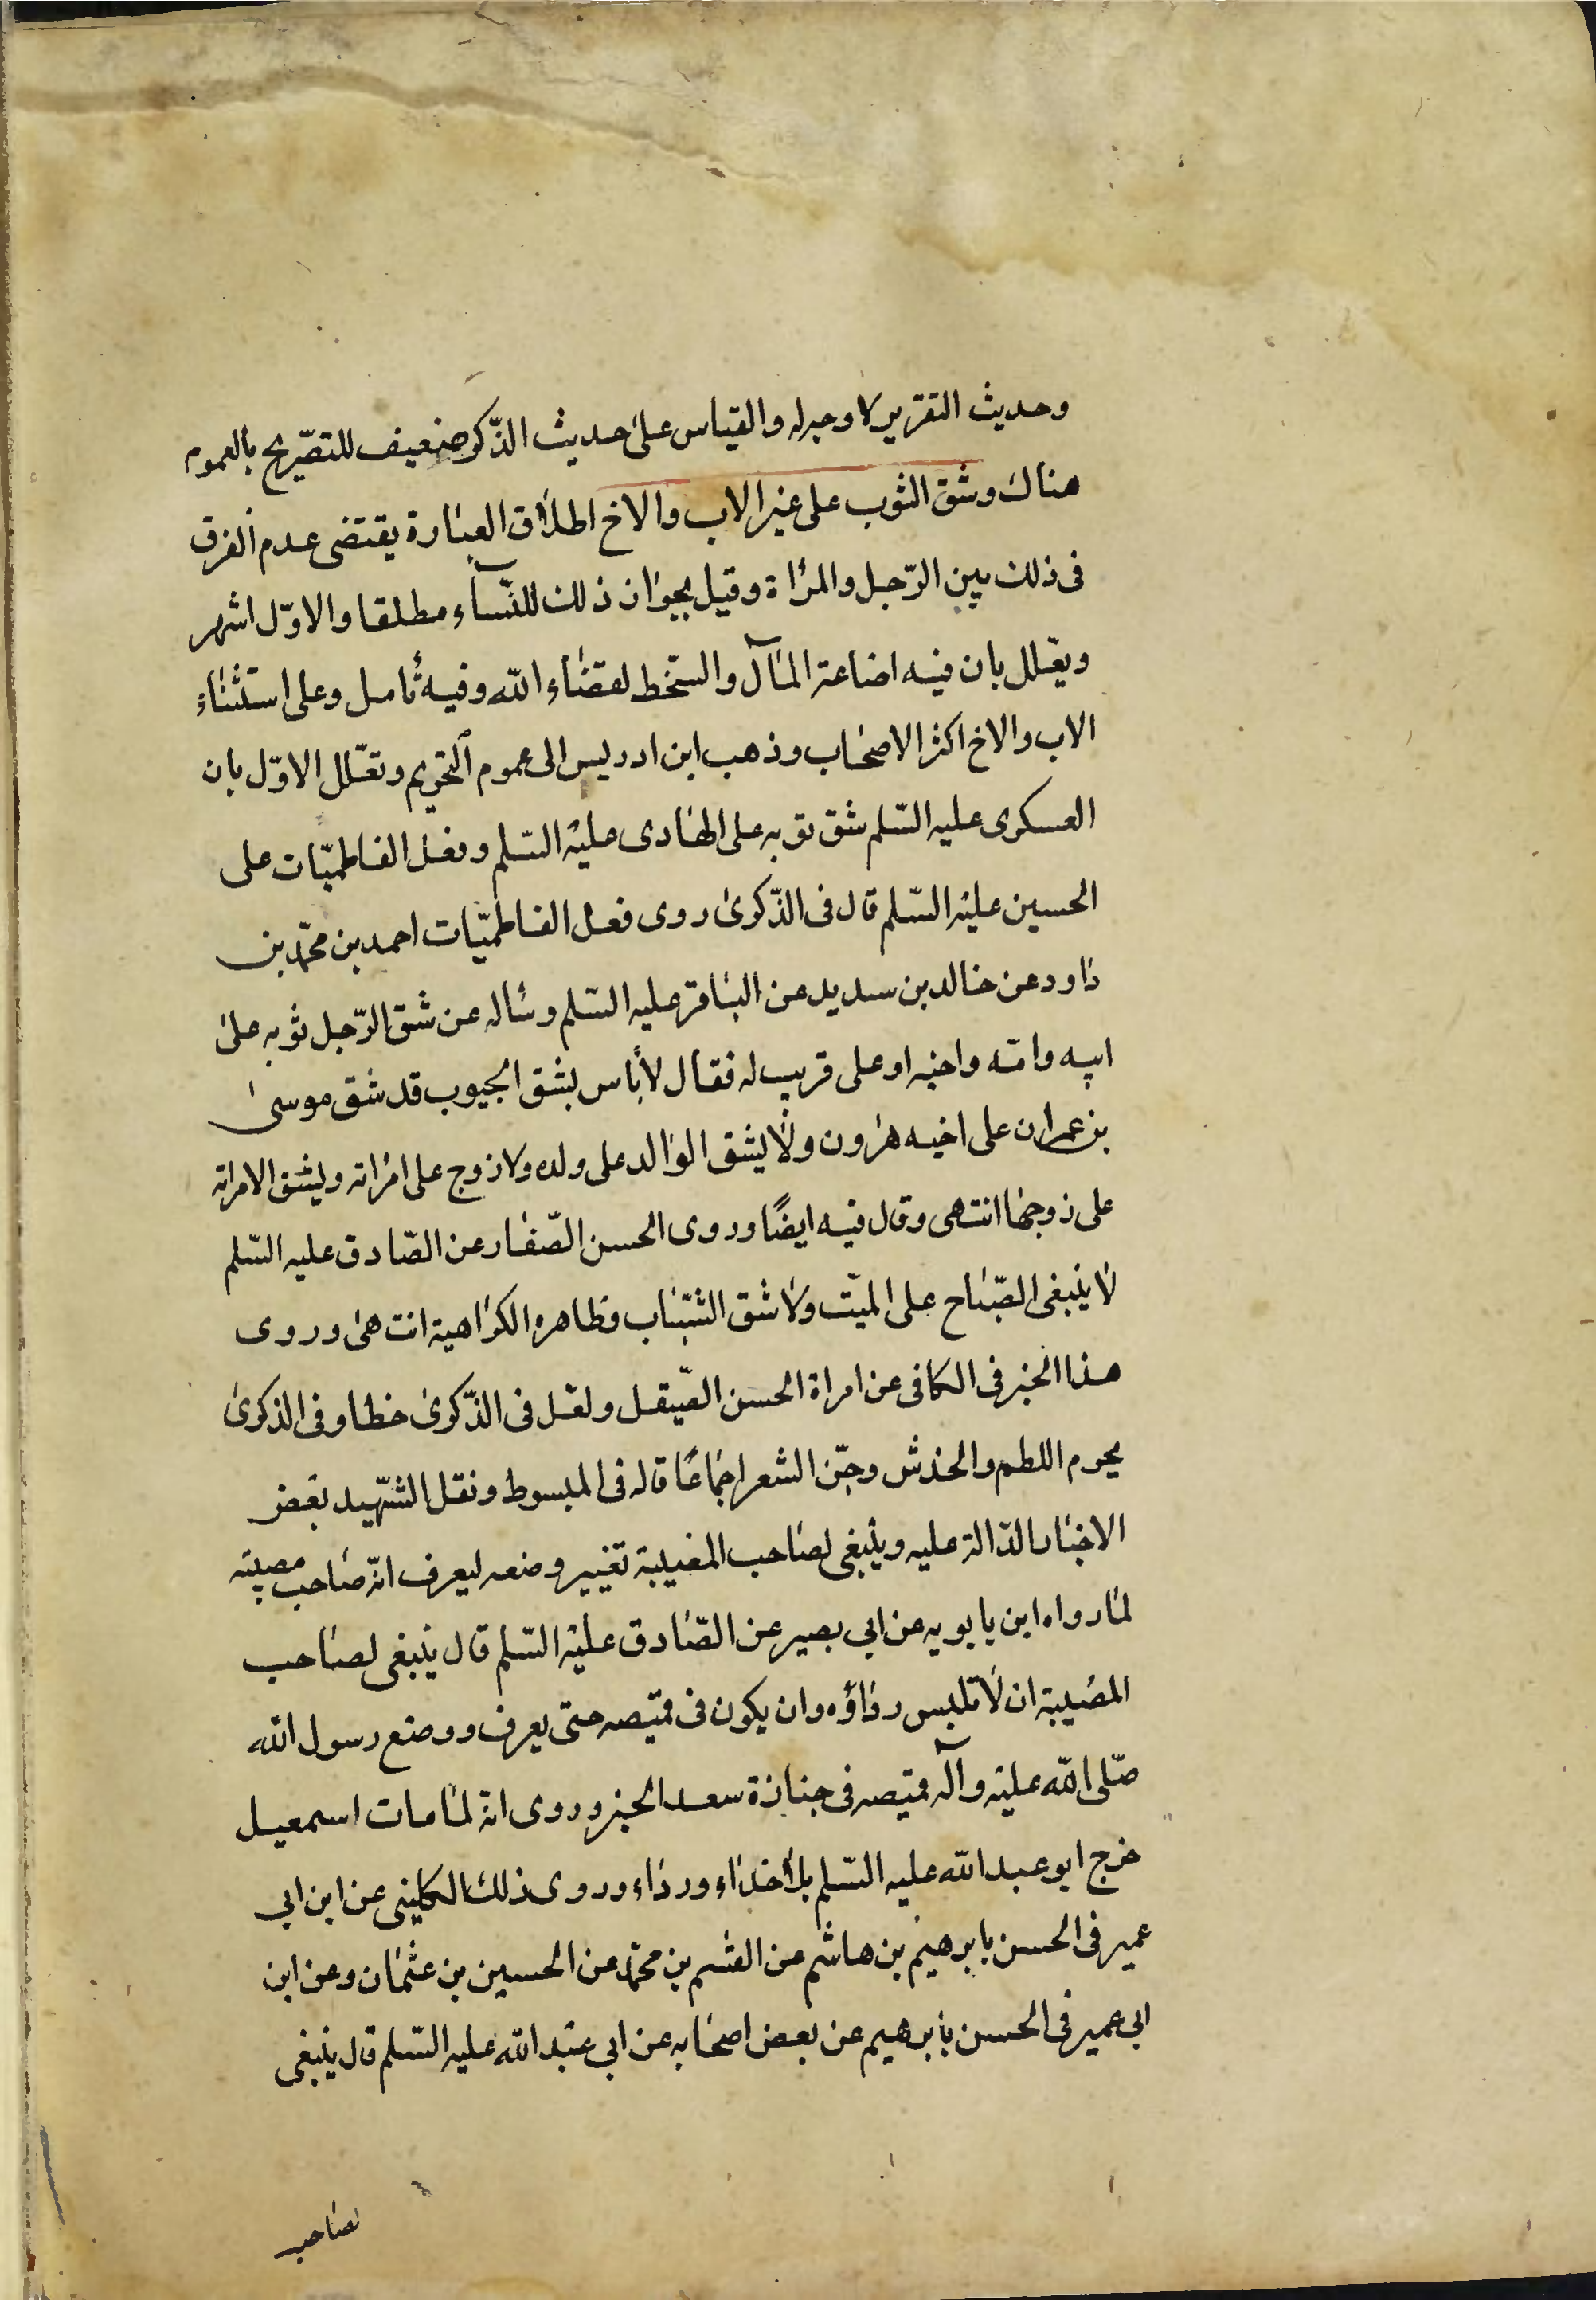 وحديث التقرير لا وجه له والقياس على حديث الذكر ضعيف للتصريح بالعموم
هناك وشق الثوب على غير الاب والاخ اطلاق العبارة يقتضى عدم الفرق
فى ذلك بين الرّجل والمرأة وقيل بجواز ذلك للنّسآء مطلقا والاوّل اشهر
ويعلل بان فيه اضاعة المآل والسّخط لقضاء الله وفيه تأمل وعلى استثناء
الاب والاخ اكثر الاصحاب وذهب ابن ادريس الى عموم التحريم وتعلّل الاوّل بان
العسكرى عليه السّلم شق ثوبه على الهادى عليه السّلم وفعل الفاطميّات على
الحسين عليه السّلم قال فى الذّكرى روى فعل الفاطميّات احمد بن محمّد بن
داود عن خالد بن سدير عن الباقر عليه السّلم وسأله عن شق الرّجل ثوبه على
ابيه وامّه واخيه او على قريب له فقال لا بأس بشق الجيوب قد شق موسى
بن عمران على اخيه هرون ولا يشق الوالد على ولده ولا زوج على امرأته ويشق الامرأة
على زوجها انتهى وقال فيه ايضًا وروى الحسن الصّفار عن الصّادق عليه السّلم
لا ينبغى الصّياح على الميّت ولا شق الثّياب وظاهره الكراهية انتهى وروى
هذا الخبر فى الكافى عن امراة الحسن الصّيقل ولعل فى الذّكرى خطا وفى الذكرى
يحرم اللطم والخدش وجزّ الشعر اجماعًا قاله فى المبسوط ونقل الشّهيد بعض
الاخبار الدّالة عليه وينبغى لصاحب المصيبة تغيير وضعه ليعرف انّه صاحب مصيبته
لما رواه ابن بابويه عن ابى بصير عن الصّادق عليه السّلم قال ينبغى لصاحب
المصيبة ان لا تلبس رداؤه وان يكون فى قميصه حتى يعرف ووضع رسول الله
صلّى الله عليه وآله قميصه فى جنازة سعد الخبر وروى انّه لما مات اسمعيل
خرج ابو عبد الله عليه السّلم بلا حذاء ورداء وروى ذلك الكلينى عن ابن ابى
عمير فى الحسن بابرهيم بن هاشم عن القسم بن محمّد عن الحسين بن عثمان وعن ابن
ابى عمير فى الحسن بابرهيم عن بعض اصحابه عن ابى عبد الله عليه السّلم قال ينبغى
لصاحب